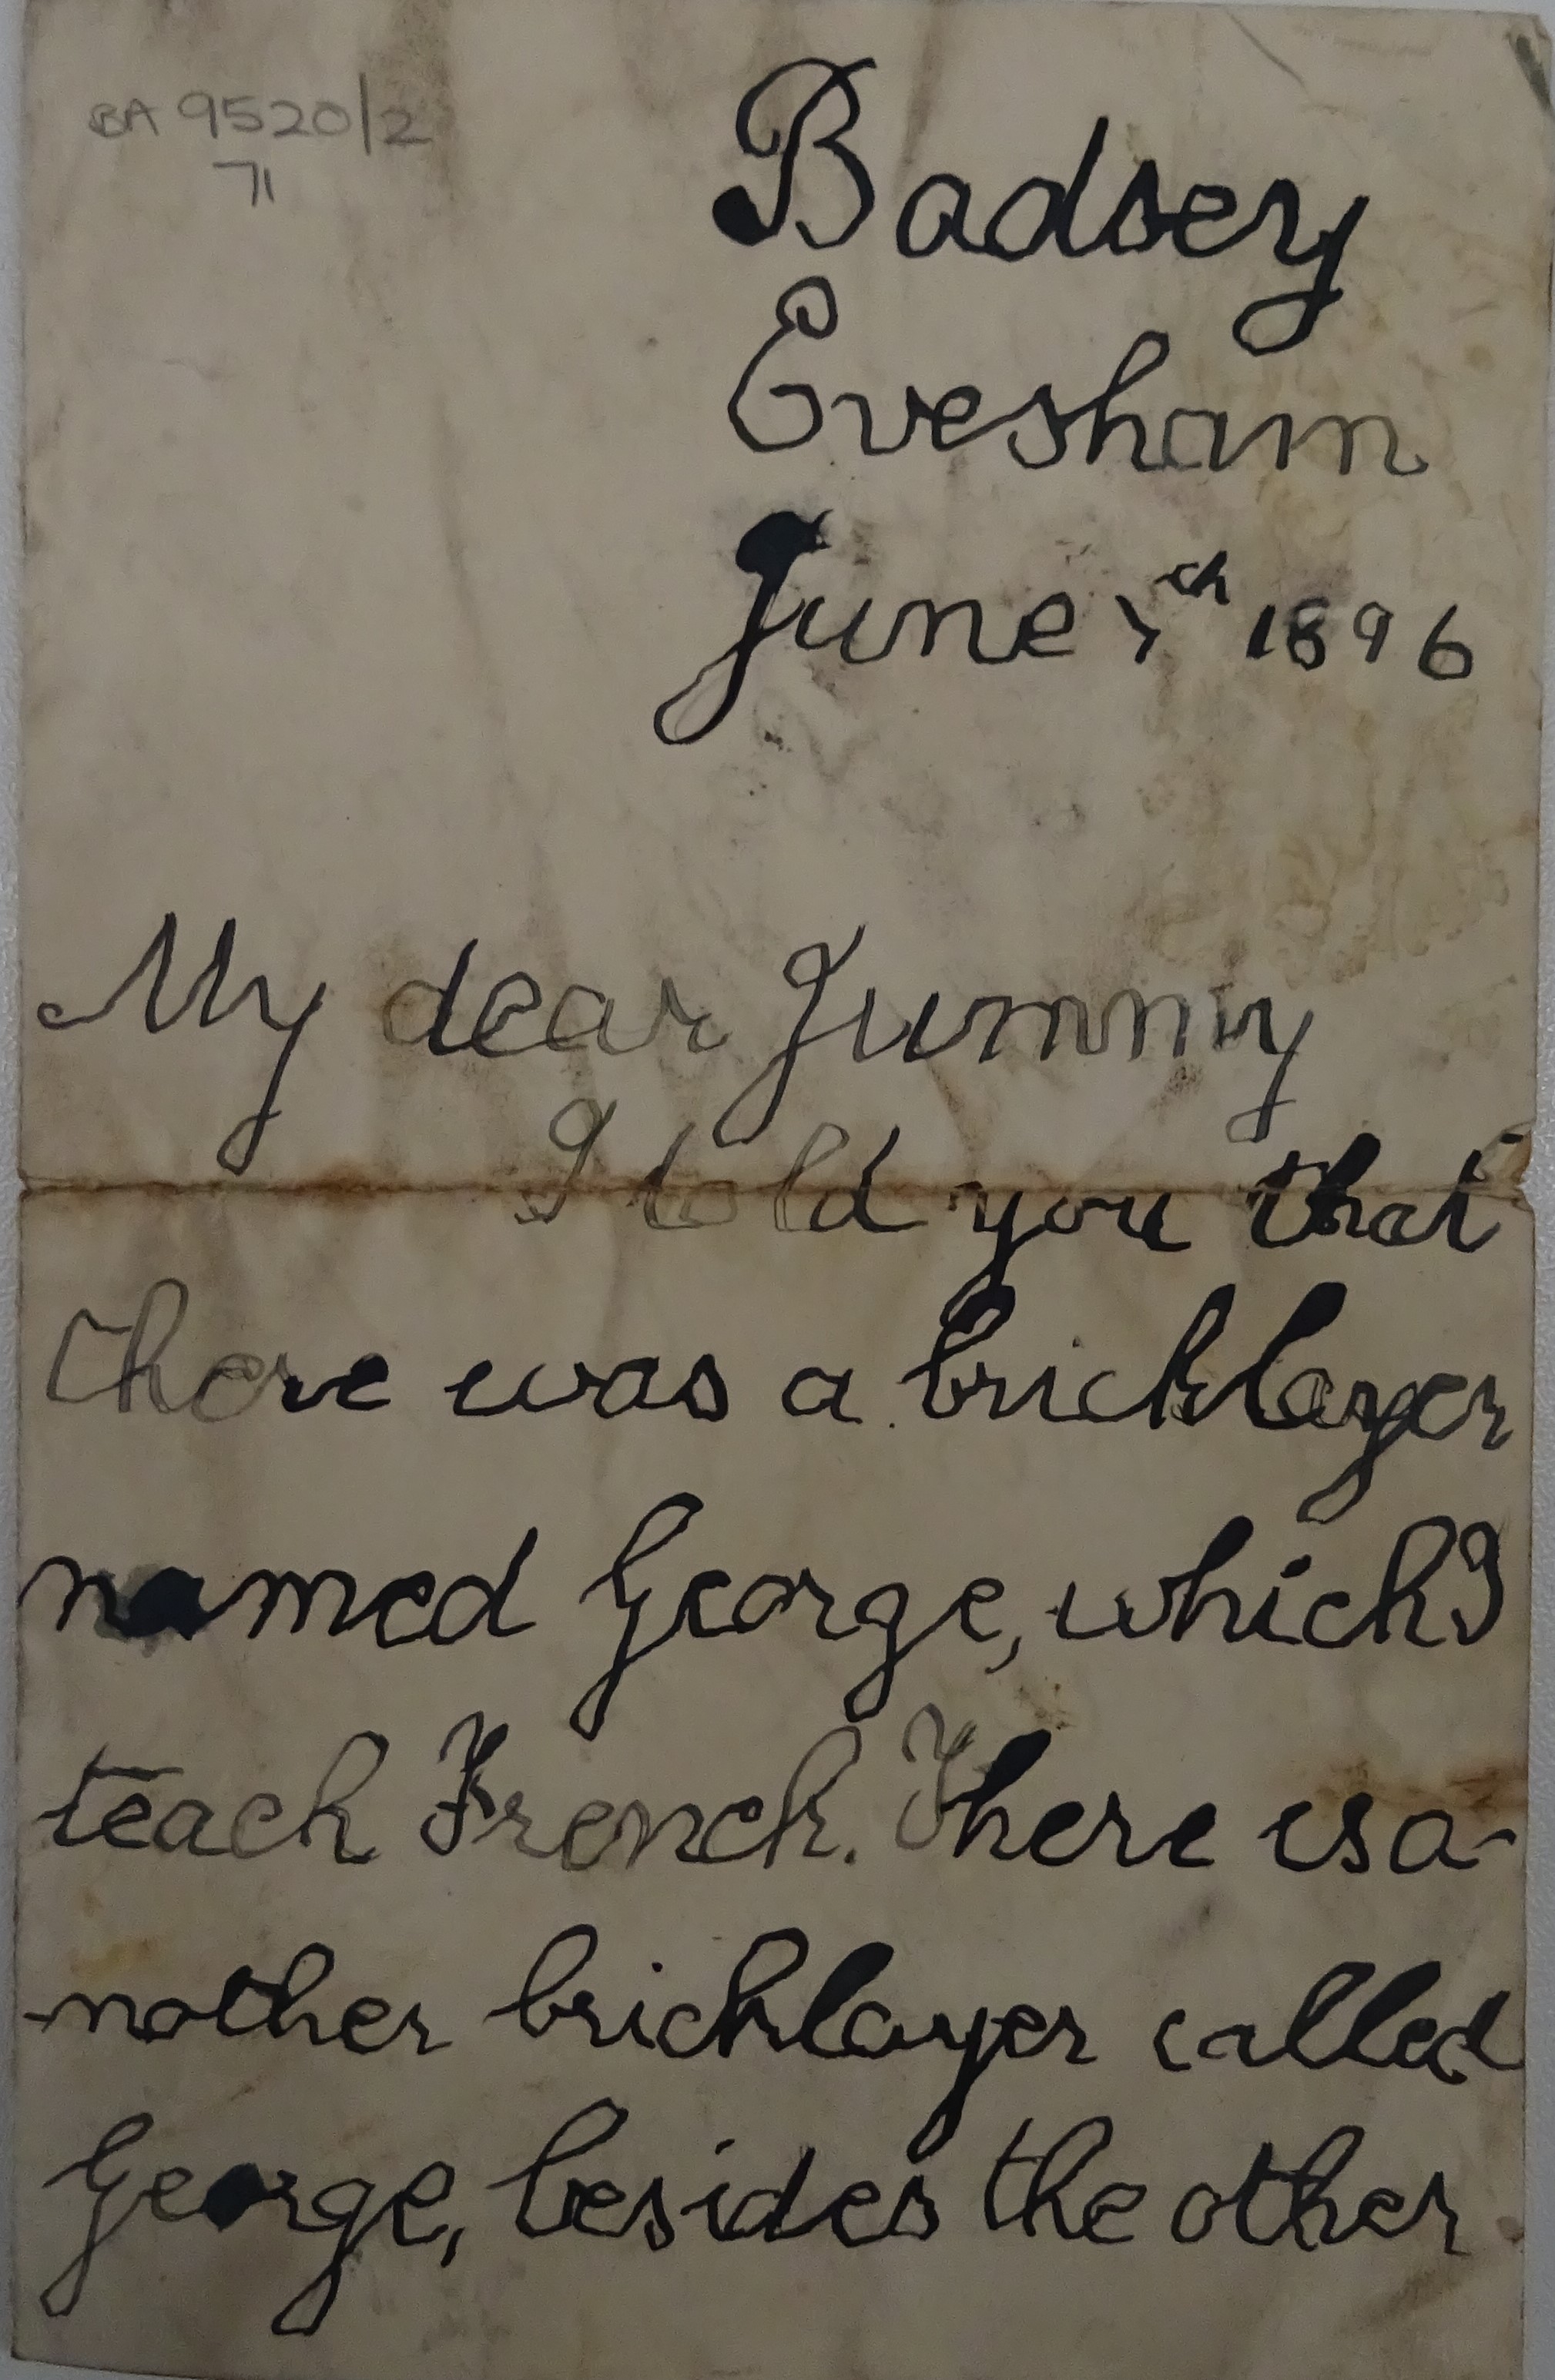 BA 9520/2
71
Badsey
Evesham
June th 1896
My dear Jummy
I told you that
there was a bricklayer
named George, which I
teach French. There is a-
nother bricklayer called
George, besides the other